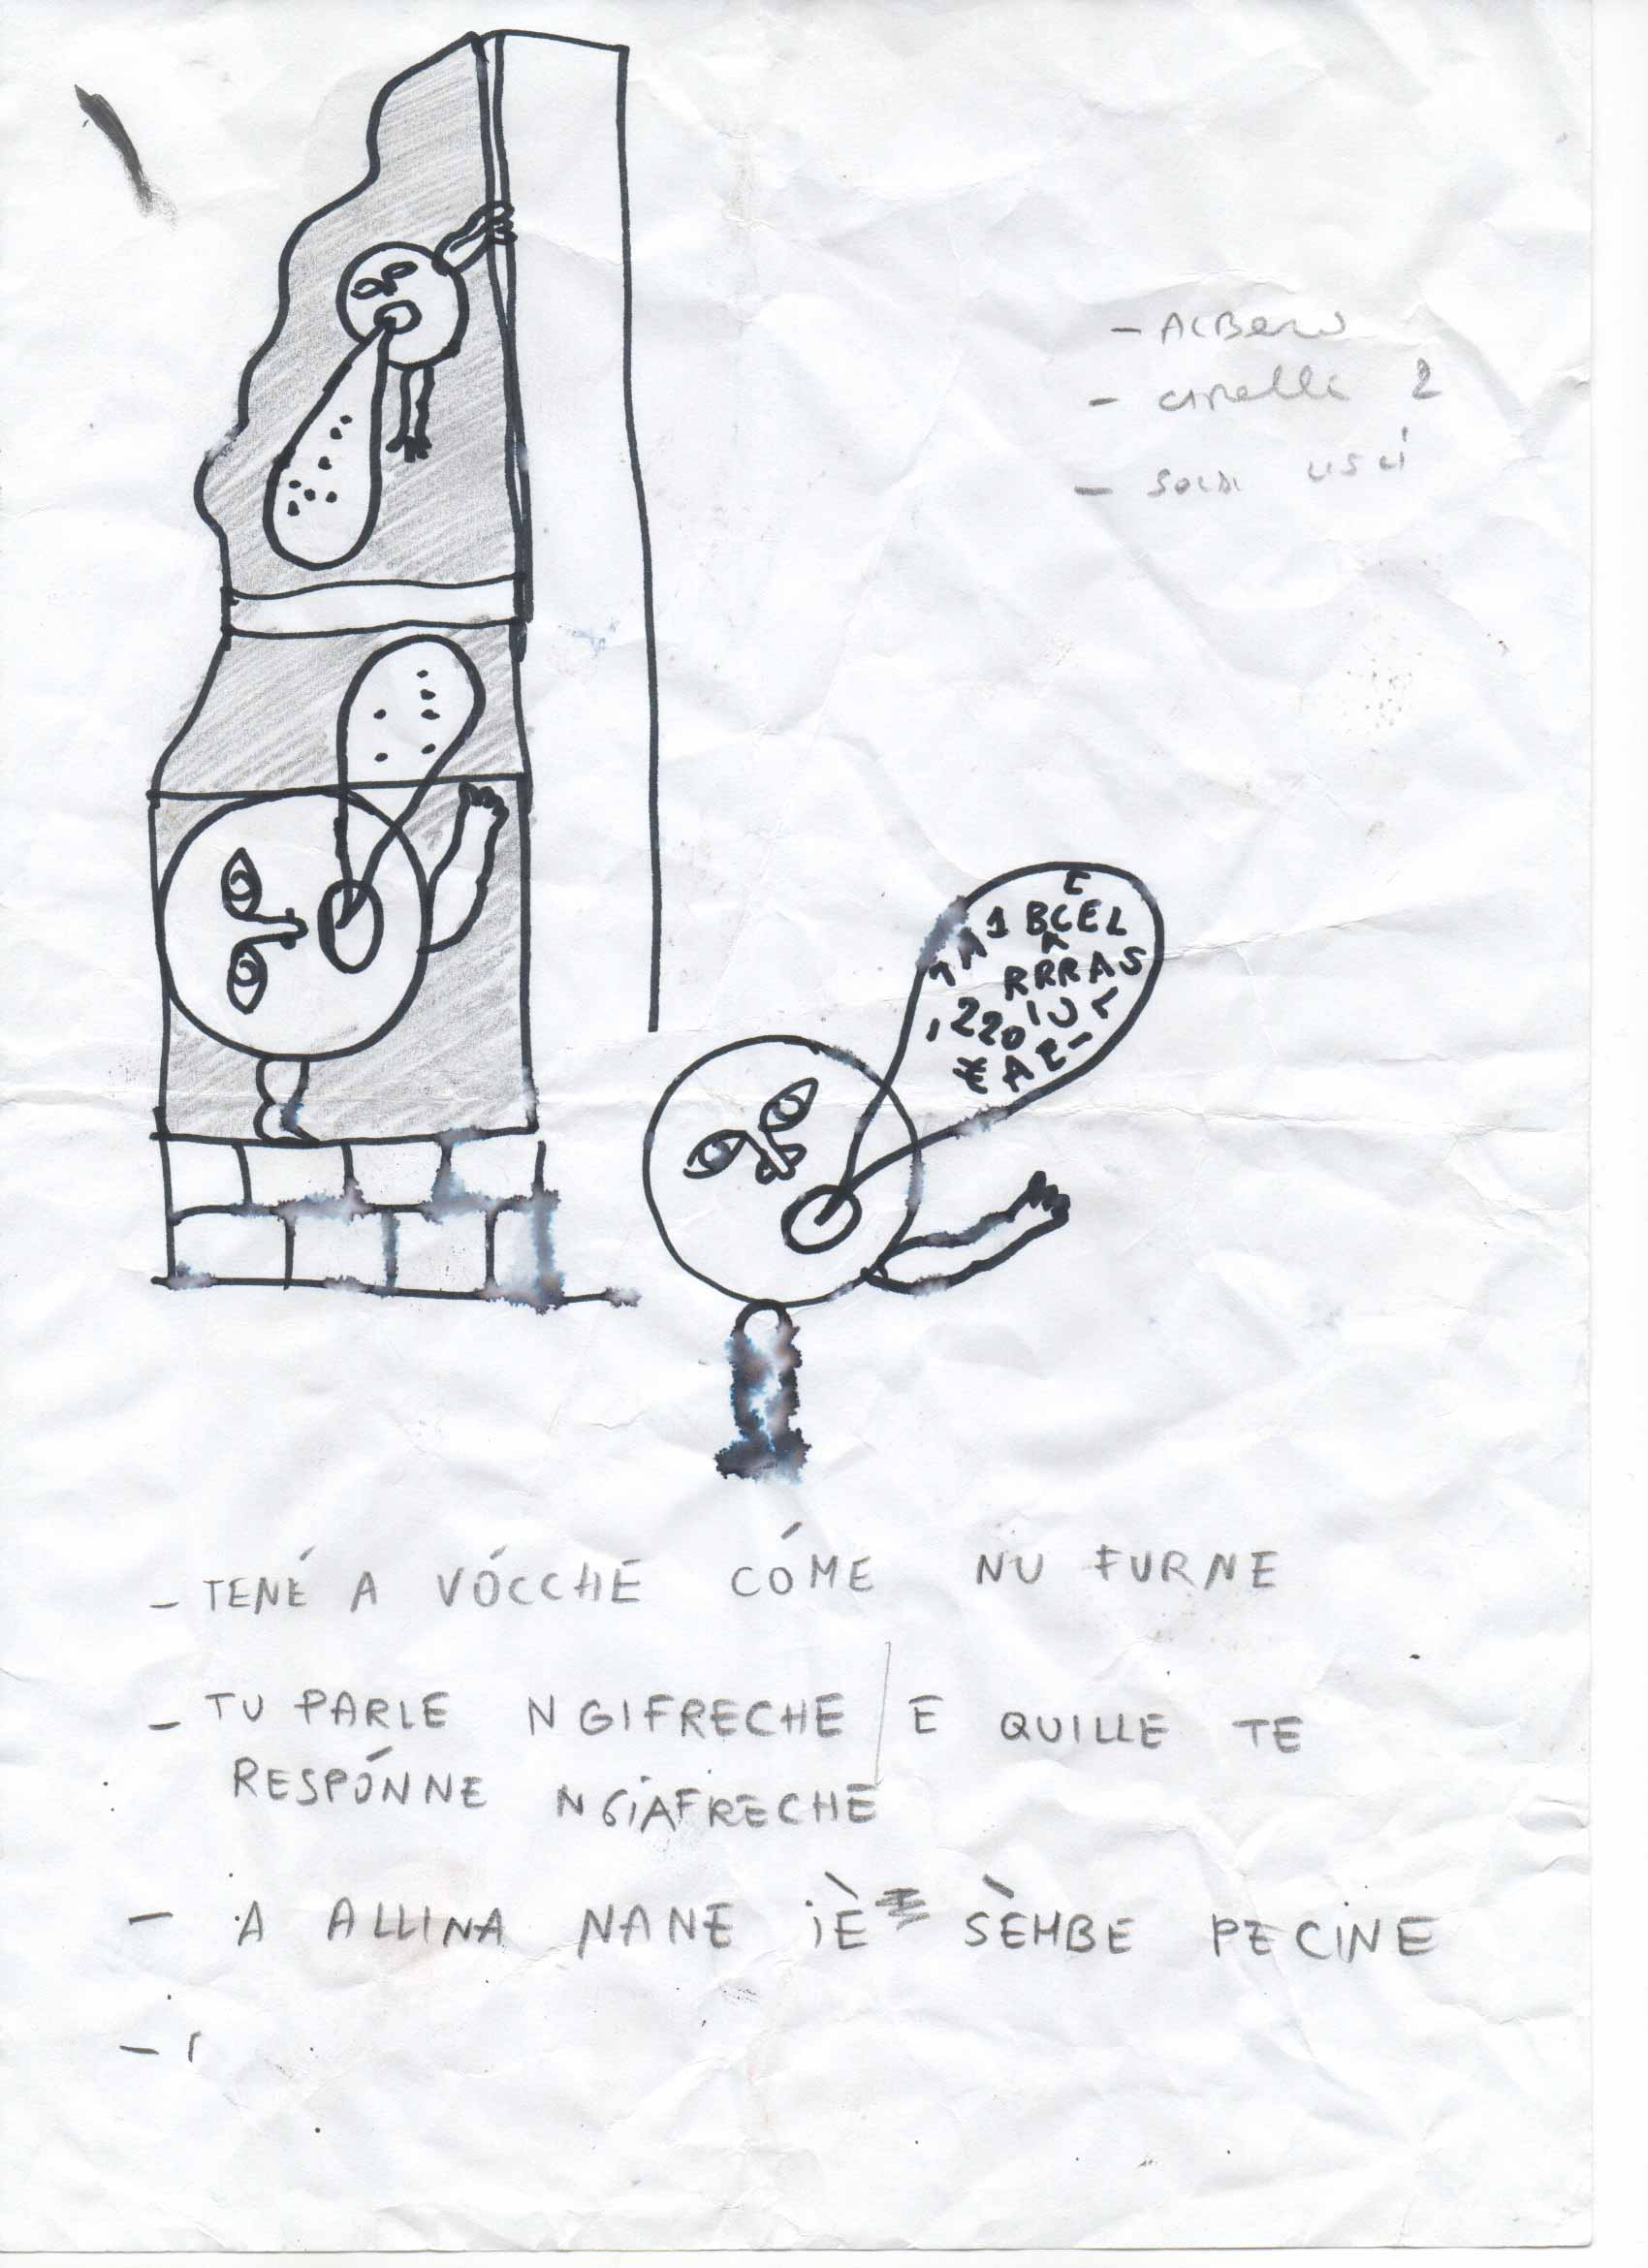 - ALBERO
- CIRELLI 2
- SOLDI USCÌ
E
1 BCEL
RRRAS
,220 IUL
- TENÉ A VÓCCHE CÓME NU FURNE
- TU PARLE NGIFRECHE / E QUILLE TE
RESPÓNNE NGIAFRECHE
- A ALLINA NANE IÈ SÈMBE PECINE
-